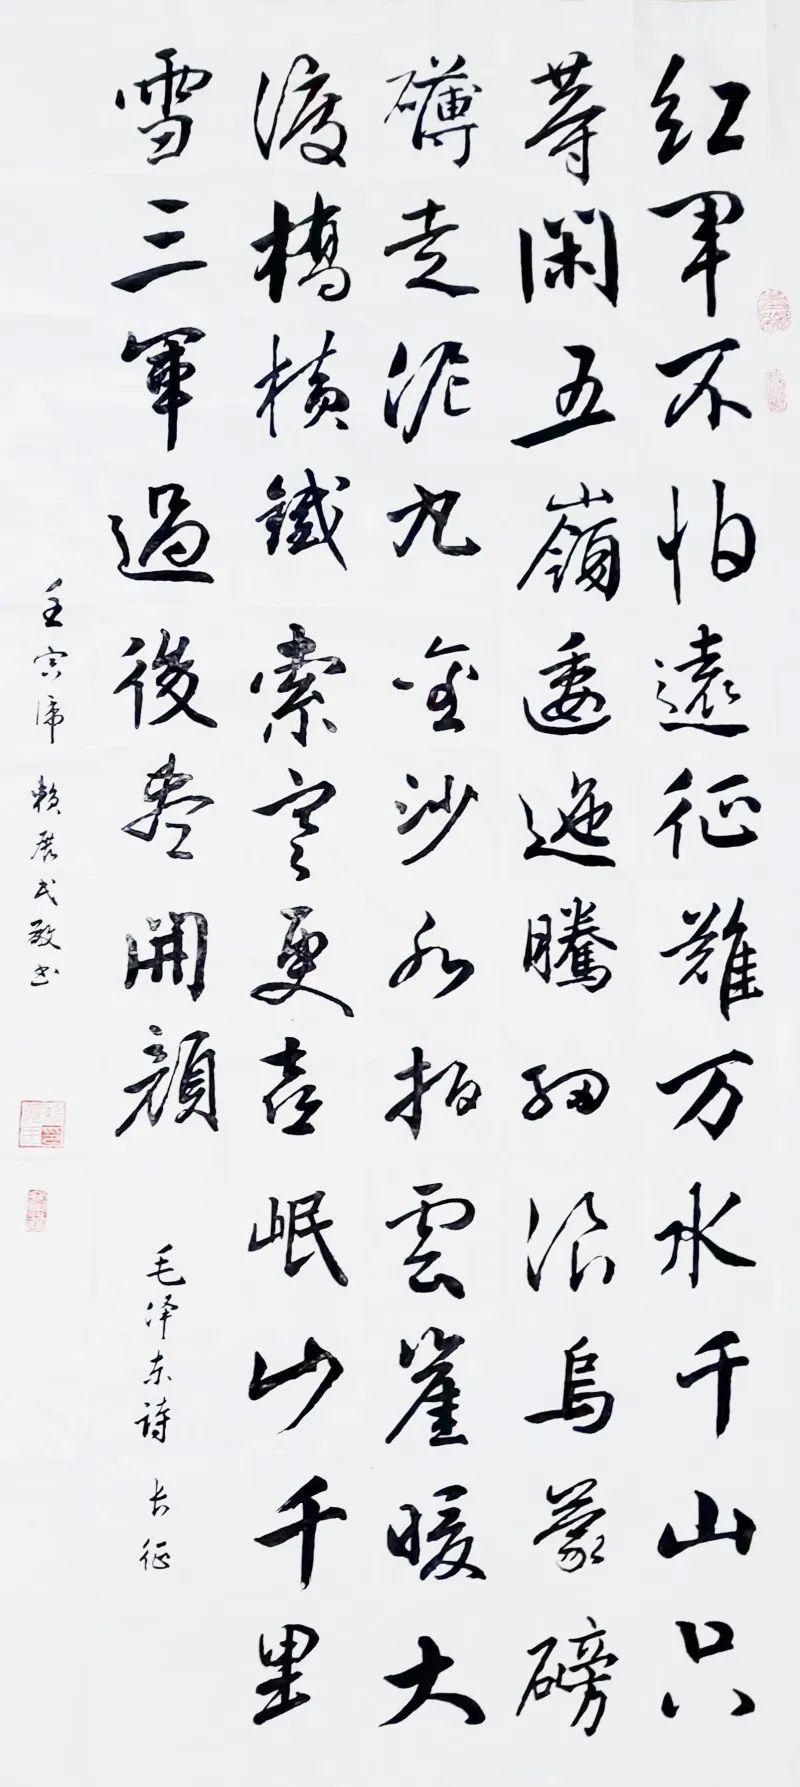 红军不怕遠征難万水千山只
等閑五嶺逶迤騰细浪烏蒙磅
礴走泥丸金沙水拍雲崖暖大
渡橋横鐵索寒更喜岷山千里
雪三軍過後盡開顏 毛泽东詩 长征
壬寅 賴展武敬书